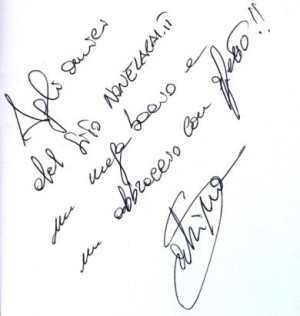 Agli amici
del sito NOVEZARAI.it
un mega bacio e
un abbraccio con affetto!!